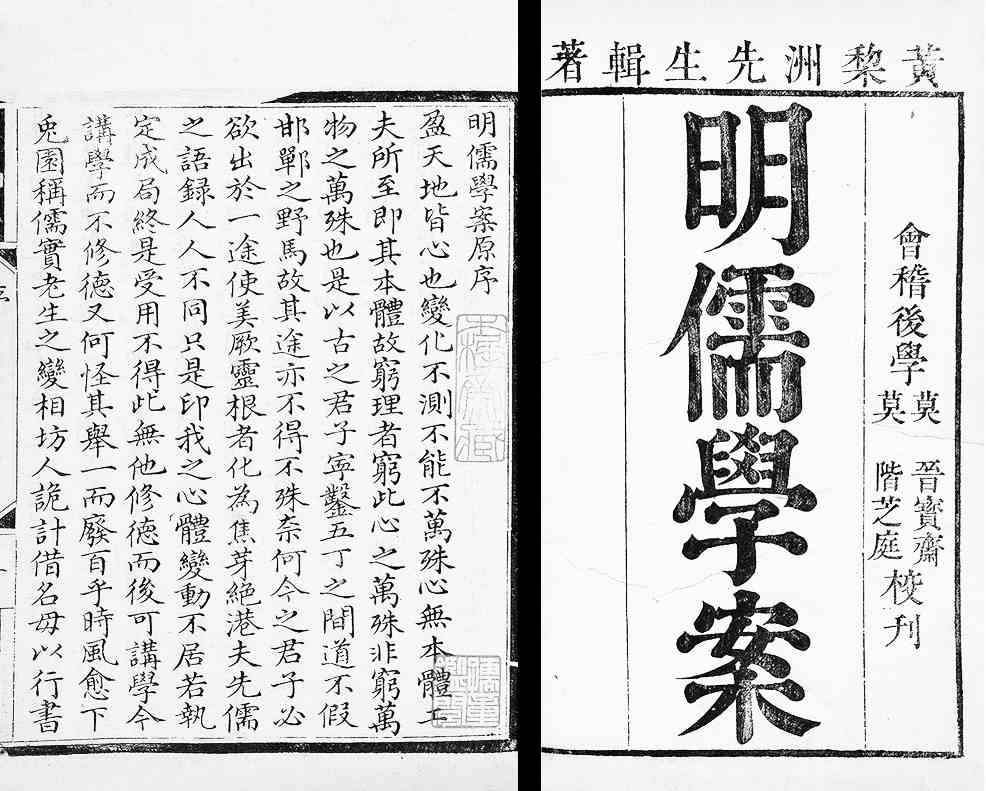 黃棃洲先生輯著
會稽後學莫晉寶齋莫階芝庭校刊
明儒學案
明儒學案原序
盈天地皆心也變化不測不能不萬殊心無本體工
夫所至即其本體故窮理者窮此心之萬殊非窮萬
物之萬殊也是以古之君子寜鑿五丁之間道不假
邯鄲之野馬故其途亦不得不殊奈何今之君子必
欲出於一途使美厥靈根者化為焦芽絕港夫先儒
之語録人人不同只是印我之心體變動不居若執
定成局終是受用不得此無他修德而後可講學今
講學而不修德又何怪其舉一而廢百乎時風愈下
兎園稱儒實老生之變相坊人詭計借名毋以行書